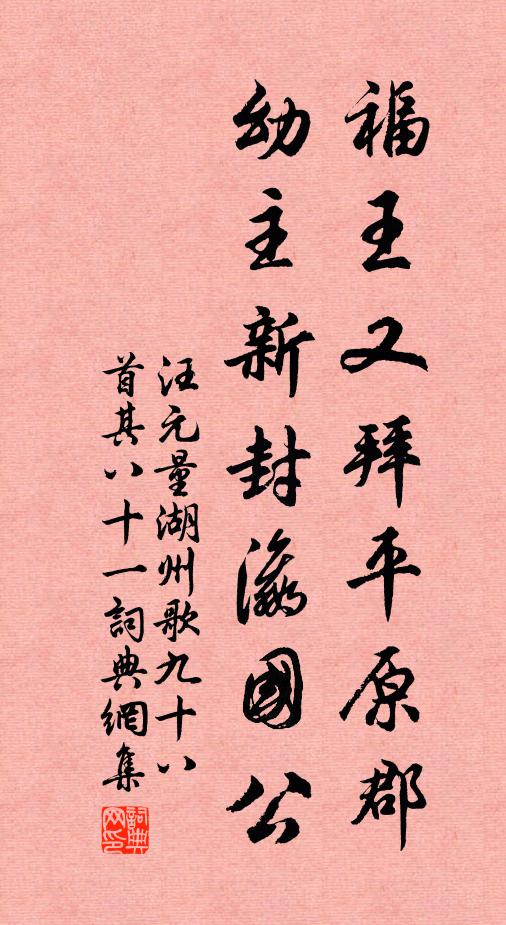 福王又拜平原郡
幼主新封瀛國公
汪元量湖州歌九十八
首其八十一詞典網集
詞典
网印